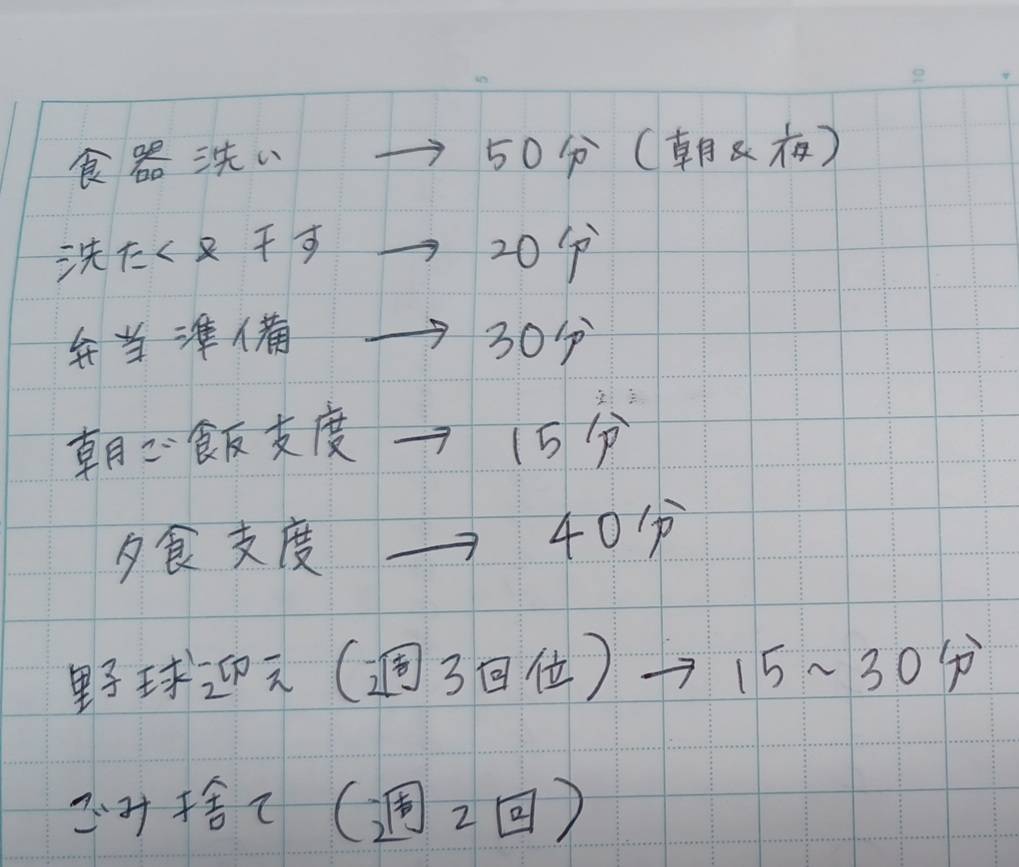 5
10
食器洗い → 50分(朝&夜)
洗たく&干す → 20分
弁当準備 → 30分
朝ご飯支度 → 15分
夕食支度 → 40分
野球迎え(週3回位)→ 15~30分
ごみ捨て(週2回)